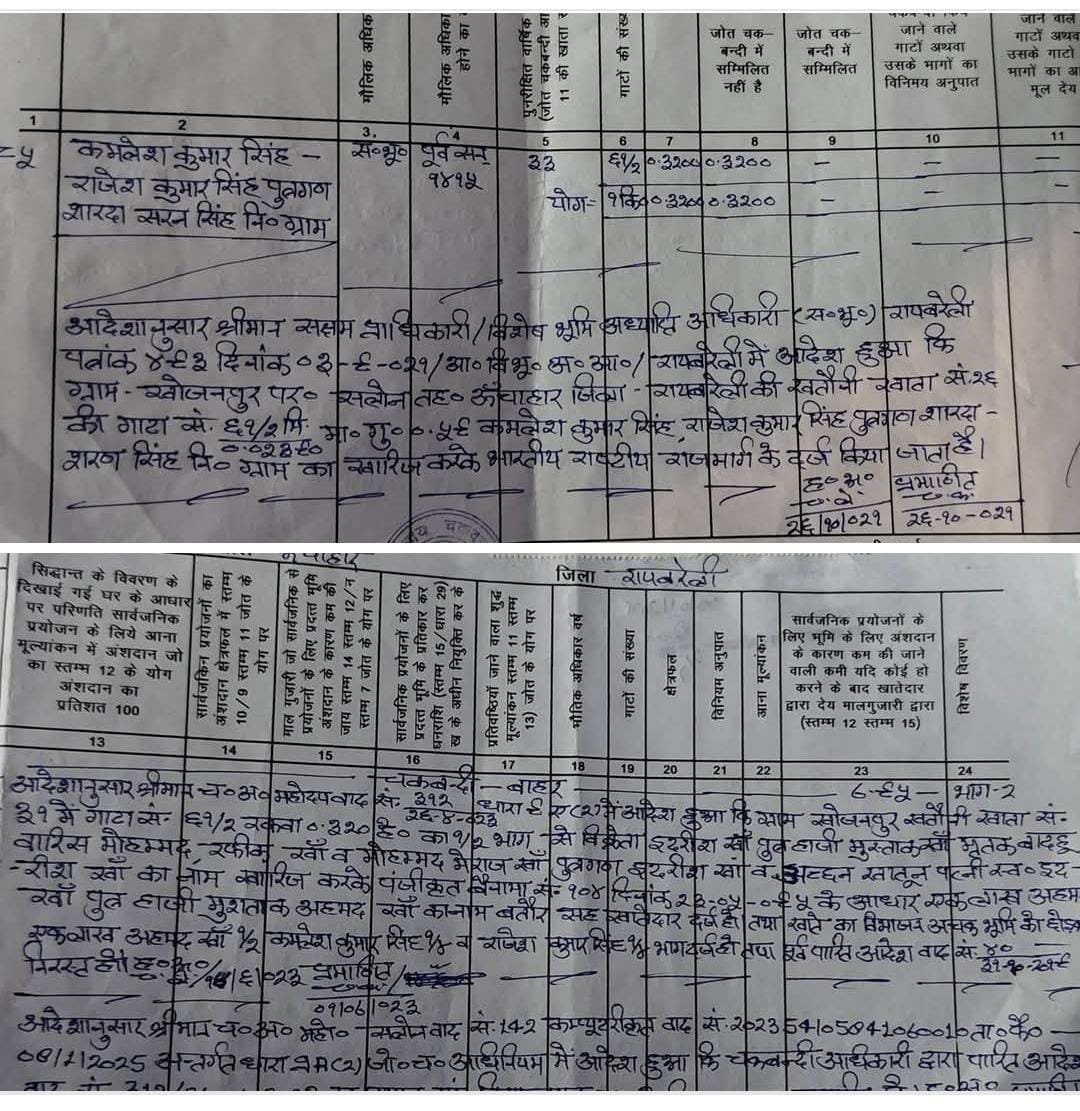 मौलिक अधिक
मौलिक अधिका
होने का
पुनरीक्षित वार्षिक
(जोत चकबन्दी अ
11 की खाता र
गाटों की संख्
जोत चक–
बन्दी में
सम्मिलित
नहीं है
जोत चक–
बन्दी में
सम्मिलित
जाने वाले
गाटों अथवा
उसके भागों का
विनिमय अनुपात
जाने वाले
गाटों अथव
उसके गाटो
भागों का आ
मूल देय
1 2 3. 4 5 6 7 8 9 10 11
कमलेश कुमार सिंह – स०भू० पूर्व सन् ३३ ६१/२ ०.3200 ०.3200 – – –
राजेश कुमार सिंह पुत्रगण १४१५ योग= १कि० ०.3200 ०.3200 – – –
शारदा सरन सिंह नि० ग्राम
आदेशानुसार श्रीमान सक्षम प्राधिकारी/विशेष भूमि अध्याप्ति अधिकारी (स०भू०) रायबरेली
पत्रांक ४९३ दिनांक ०३-९-०२१/आ० वि०भू०अ०आ०/रायबरेली में आदेश हुआ कि
ग्राम- खोजनपुर पर० सलोन तह० ऊँचाहार जिला - रायबरेली की खतौनी खाता सं.२६
की गाटा सं. ६१/२मि. मा०गु० ०.५९ कमलेश कुमार सिंह, राजेश कुमार सिंह पुत्रगण शारदा-
शरण सिंह नि० ग्राम का खारिज करके भारतीय राष्टीय राजमार्ग के दर्ज किया जाता है।
ह०अ० प्रमाणित
च.ले. च.क.
२६/१०/०२१ २६-१०-०२१
जिला रायबरेली
सिद्धान्त के विवरण के
दिखाई गई घर के आधार
पर परिणति सार्वजनिक
प्रयोजन के लिये आना
मूल्यांकन में अंशदान जो
का स्तम्भ 12 के योग
अंशदान का
प्रतिशत 100
सार्वजकिन प्रयोजनों का
अंशदान क्षेत्रफल में स्तम्भ
10/9 स्तम्भ 11 जोत के
योग पर
माल गुजारी जो सार्वजनिक से
प्रयोजनों के लिए प्रदत्त भूमि
अंशदान के कारण कम की
जाय स्तम्भ 14 स्तम्भ 12/न
स्तम्भ 7 जोत के योग पर
सार्वजनिक प्रयोजनों के लिए
प्रदत्त भूमि के प्रतिकार कर
धनराशि (स्तम्भ 15/धारा 29)
ख के अधीन नियुक्ति कर के
प्रतिवष्टियों जाने वाला शुद्ध
मूल्यांकन स्तम्भ 11 स्तम्भ
13) जोत के योग पर
भौतिक अधिकार वर्ष
गाटों की संख्या
क्षेत्रफल
विनियम अनुपात
आना मूल्यांकन
सार्वजनिक प्रयोजनों के
लिए भूमि के लिए अंशदान
के कारण कम की जाने
वाली कमी यदि कोई हो
करने के बाद खातेदार
द्वारा देय मालगुजारी द्वारा
(स्तम्भ 12 स्तम्भ 15)
विशेष विवरण
13 14 15 16 17 18 19 20 21 22 23 24
चकबन्दी – बाहर ६-९५ भाग-२
आदेशानुसार श्रीमान च०अ० महोदय वाद सं- ३१२ धारा ९ए(२) में आदेश हुआ कि ग्राम खोजनपुर खतौनी खाता सं-
२६-४-०२३
३१ में गाटा सं- ६१/२ रकबा ०.३२० हे० का १/२ भाग से विक्रेता इदरीश खाँ पुत्र हाजी मुस्ताक खाँ मृतक वादहू
वारिस मोहम्मद रफीक खाँ व मोहम्मद मेराज खाँ पुत्रगण इदरीश खाँ व अच्छन खातून पत्नी स्व० इद-
-रीश खाँ का नाम खारिज करके पंजीकृत बैनामा सं- १०४ दिनांक २३-०५-०९५ के आधार एकलाख अहम
खाँ पुत्र हाजी मुशताक अहमद खाँ का नाम बतौर सह खातेदार दर्ज हो। तथा खाते का विभाजन
एकलाख अहमद खाँ १/२ कमलेश कुमार सिंह १/४ व राजेश कुमार सिंह १/४ भाग दर्ज हो तथा पूर्व पारित आदेश वाद सं- ४०
निरस्त हो। ह०अ०/ प्रमाणित
०१/०६/०२३
आदेशानुसार श्रीमान च०अ० महो० सलोन वाद सं.142 कम्प्यूटरीकृत वाद सं. 202354105841060010 ता०फै० –
08/1/2025 अन्तर्गत धारा 9A(2) जो०च० अधिनियम में आदेश हुआ कि चकबन्दी अधिकारी द्वारा पारित आदेश